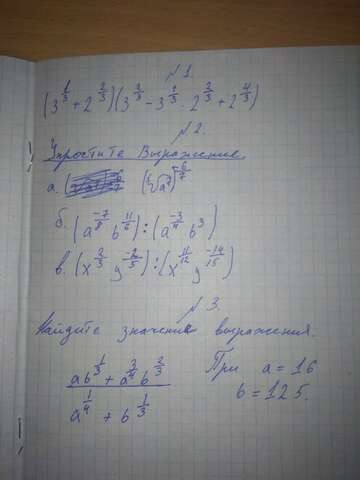 №1.
(3^{1/3} + 2^{2/3})(3^{2/3} - 3^{1/3} · 2^{2/3} + 2^{4/3})
№2.
Упростите Выражение.
а. (\sqrt[4]{a^4})^{-6/7}
б. (a^{-7/8} b^{11/6}) : (a^{-3/4} b^3)
в. (x^{2/3} y^{-2/5}) : (x^{11/12} y^{-14/15})
№3.
Найдите значение выражения.
\frac{ab^{1/3} + a^{3/4} b^{2/3}}{a^{1/4} + b^{1/3}} При a = 16
b = 125.